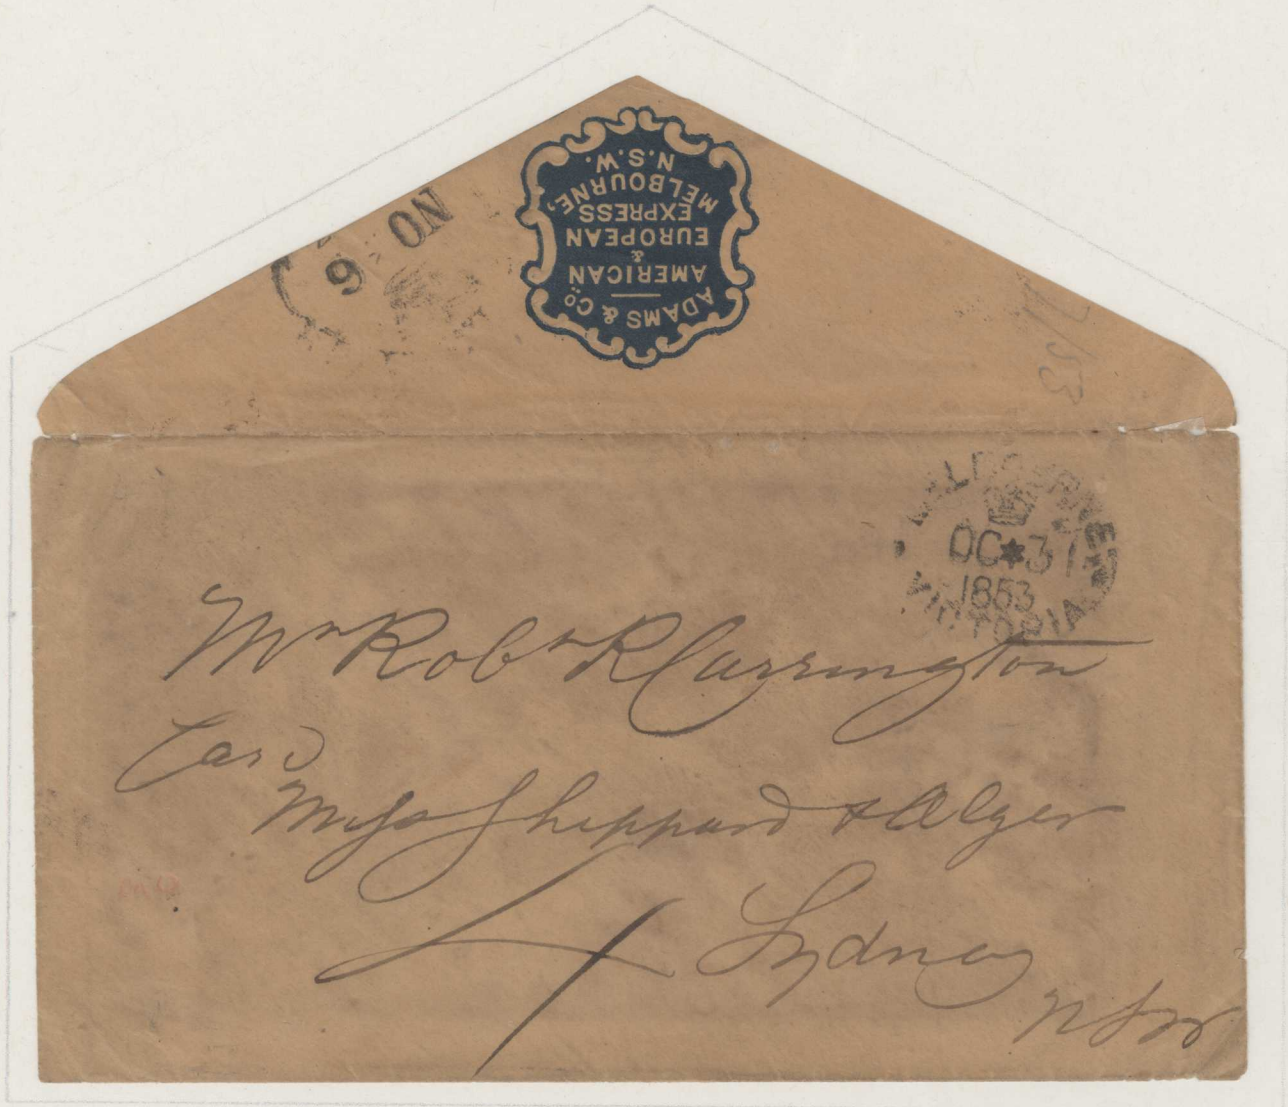 ADAMS & Co.
AMERICAN
&
EUROPEAN
EXPRESS
MELBOURNE,
N.S.W.
NO
6
MELBOURNE
OC 31
1853
VICTORIA
Mr Robt R Carrington
Care
Mess Sheppard & Alger
Sydney
NSW
4